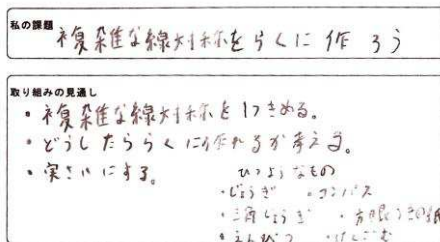 私の課題
複雑な線対称をらくに作ろう
取り組みの見通し
・複雑な線対称を1つきめる。
・どうしたららくに作れるか考える。
・実さいにする。
ひつようなもの
・じょうぎ ・コンパス
・三角じょうぎ ・方眼つきの紙
・えんぴつ ・けしごむ